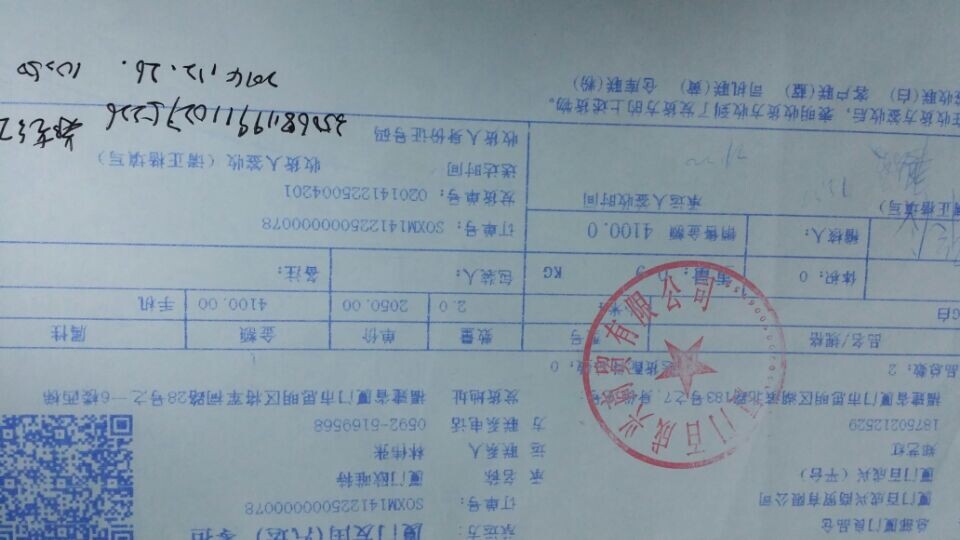 总部厦门良品仓 承运方:
厦门百成兴商贸有限公司 订单号: SOXM14122500000078
厦门百成兴(平台) 承 名称 厦门欧唯特
运 联系人 林伟张
18750212529 方 联系电话 0592-5169568
福建省厦门市思明区湖滨北路183号之7, 身份证号: 发货地址 福建省厦门市思明区将军祠路28号之一6楼西梯
品总数: 2 数: 0
品名/规格 号 数量 单价 金额 属性
G白 2.0 2050.00 4100.00 手机
体积: 0 重量: KG 包装人: 备注:
稽核人: 销售金额 4100.0 订单号: SOXM14122500000078
发货单号: 020141225004201
正楷填写) 承运人签收时间 送达时间 收货人签收(请正楷填写)
收货人身份证号码
在收货方签收后, 表明收货方收到了发货方的上述货物。
收联(白) 客户联(蓝) 司机联(黄) 仓库联(粉)
2014.12.26.
门百成兴商贸有限公司